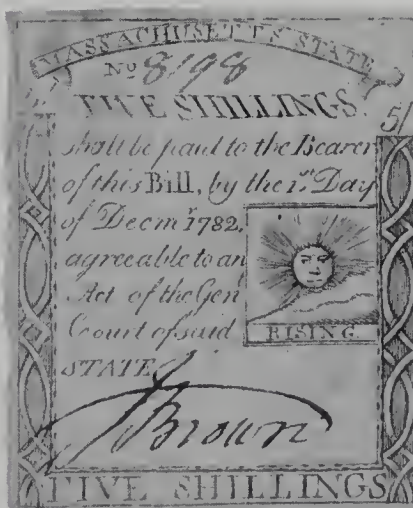 MASSACHUSETTS STATE
No 8198
FIVE SHILLINGS.
5
shall be paid to the Bearer
of this Bill, by the 1st Day
of Decmr 1782,
agreeable to an
Act of the Gen
Court of said
STATE
RISING
J Brown
FIVE SHILLINGS